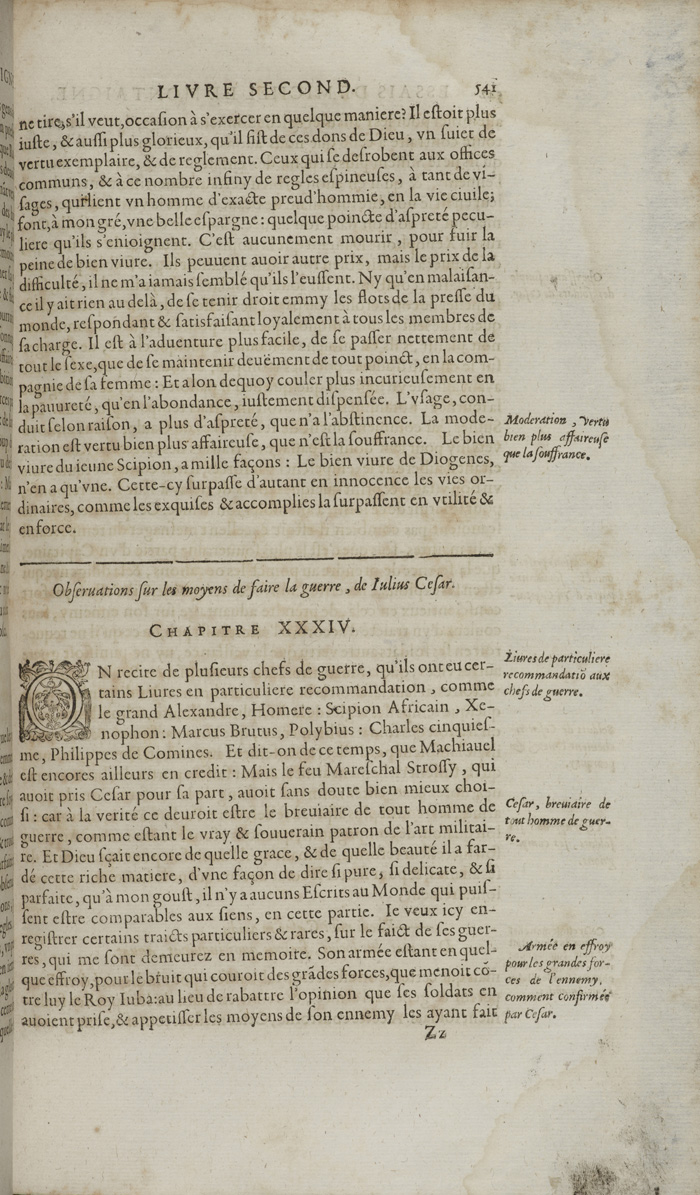 LIVRE SECOND. 541
ne tire, s'il veut, occasion à s'exercer en quelque maniere? Il estoit plus
iuste, & aussi plus glorieux, qu'il fist de ces dons de Dieu, vn suiet de
vertu exemplaire, & de reglement. Ceux qui se desrobent aux offices
communs, & à ce nombre infiny de regles espineuses, à tant de vi-
sages, qui lient vn homme d'exacte preud'hommie, en la vie ciuile;
font, à mon gré, vne belle espargne: quelque poincte d'aspreté pecu-
liere qu'ils s'enioignent. C'est aucunement mourir, pour fuir la
peine de bien viure. Ils peuuent auoir autre prix, mais le prix de la
difficulté, il ne m'a iamais semblé qu'ils l'eussent. Ny qu'en malaisan-
ce il y ait rien au delà, de se tenir droit emmy les flots de la presse du
monde, respondant & satisfaisant loyalement à tous les membres de
sa charge. Il est à l'aduenture plus facile, de se passer nettement de
tout le sexe, que de se maintenir deuëment de tout poinct, en la com-
pagnie de sa femme: Et a lon dequoy couler plus incurieusement en
la pauureté, qu'en l'abondance, iustement dispensée. L'vsage, con-
duit selon raison, a plus d'aspreté, que n'a l'abstinence. La mode-
ration est vertu bien plus affaireuse, que n'est la souffrance. Le bien
viure du ieune Scipion, a mille façons: Le bien viure de Diogenes,
n'en a qu'vne. Cette-cy surpasse d'autant en innocence les vies or-
dinaires, comme les exquises & accomplies la surpassent en vtilité &
en force.
Moderation, vertu
bien plus affaireuse
que la souffrance.
Obseruations sur les moyens de faire la guerre, de Iulius Cesar.
CHAPITRE XXXIV.
ON recite de plusieurs chefs de guerre, qu'ils ont eu cer-
tains Liures en particuliere recommandation, comme
le grand Alexandre, Homere: Scipion Africain, Xe-
nophon: Marcus Brutus, Polybius: Charles cinquies-
me, Philippes de Comines. Et dit-on de ce temps, que Machiauel
est encores ailleurs en credit: Mais le feu Mareschal Strossy, qui
auoit pris Cesar pour sa part, auoit sans doute bien mieux choi-
si: car à la verité ce deuroit estre le breuiaire de tout homme de
guerre, comme estant le vray & souuerain patron de l'art militai-
re. Et Dieu sçait encore de quelle grace, & de quelle beauté il a far-
dé cette riche matiere, d'vne façon de dire si pure, si delicate, & si
parfaite, qu'à mon goust, il n'y a aucuns Escrits au Monde qui puis-
sent estre comparables aux siens, en cette partie. Ie veux icy en-
registrer certains traicts particuliers & rares, sur le faict de ses guer-
res, qui me sont demeurez en memoire. Son armée estant en quel-
que effroy, pour le bruit qui couroit des grādes forces, que menoit cō-
tre luy le Roy Iuba: au lieu de rabattre l'opinion que ses soldats en
auoient prise, & appetisser les moyens de son ennemy les ayant fait
Liures de particuliere
recommandatiō aux
chefs de guerre.
Cesar, breuiaire de
tout homme de guer-
re.
Armée en effroy
pour les grandes for-
ces de l'ennemy,
comment confirmée
par Cesar.
Zz